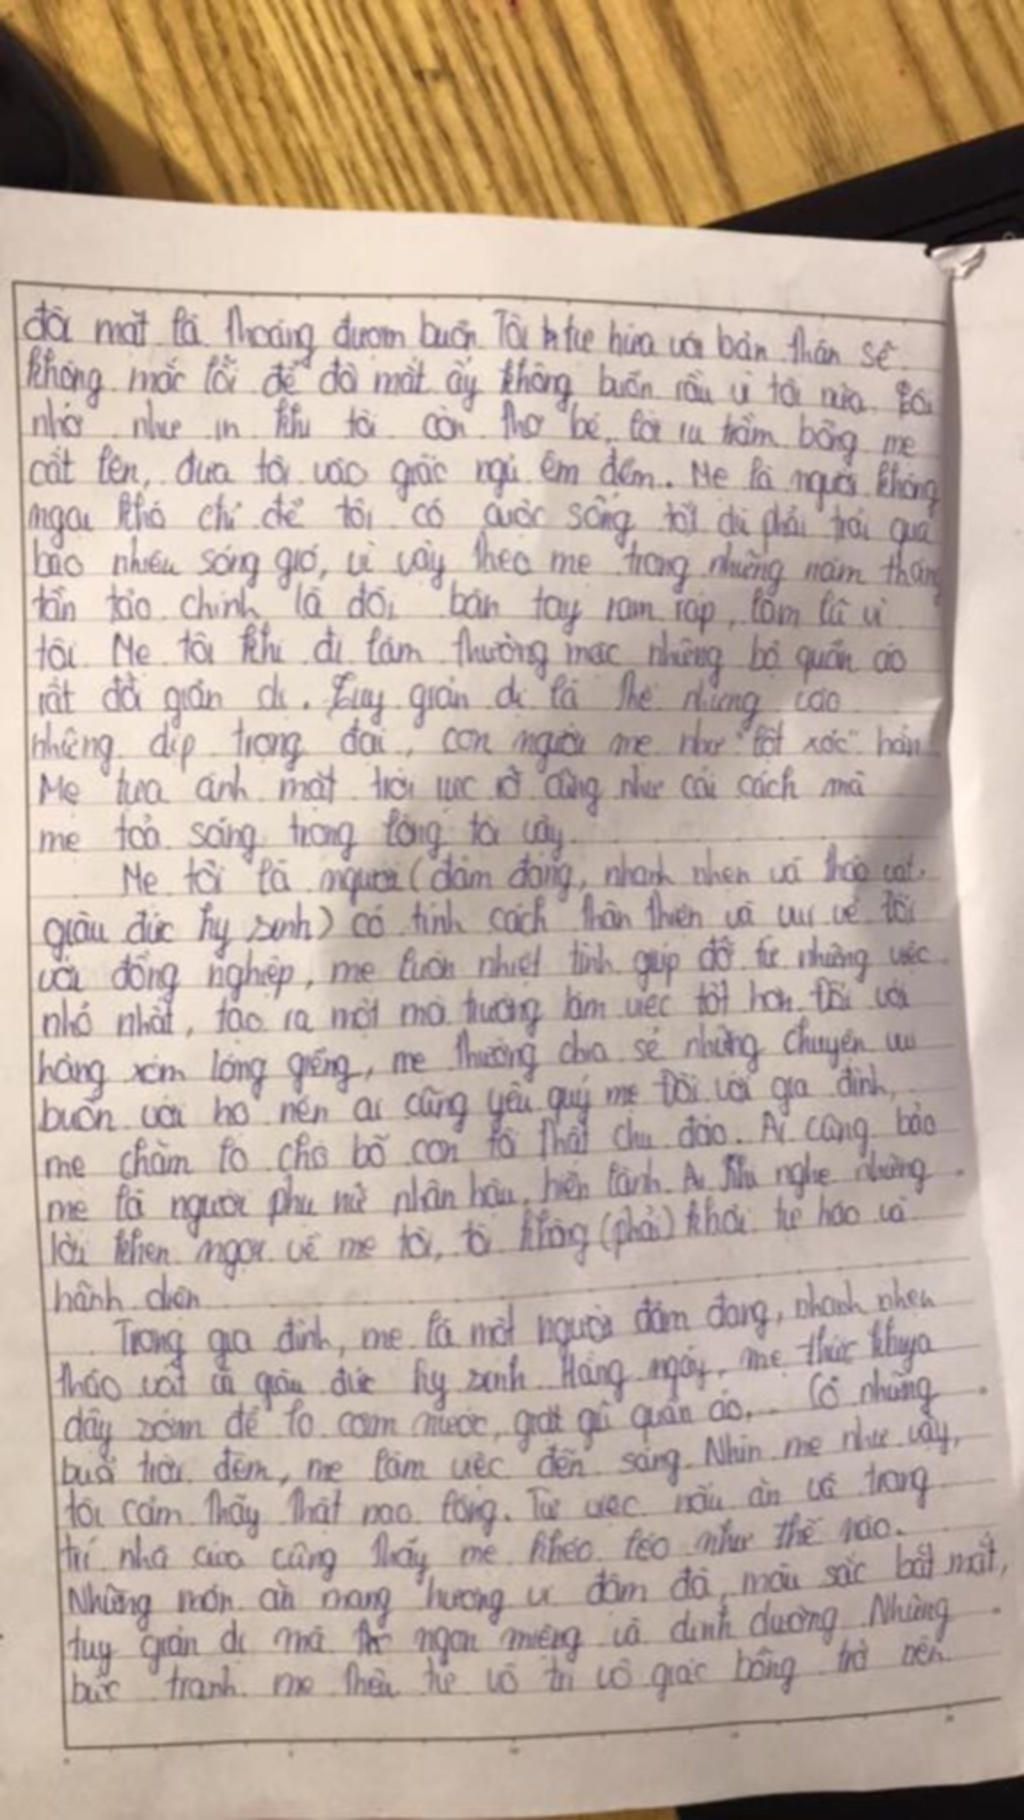 đôi mắt lá thoáng đượm buồn Tôi tự hứa với bản thân sẽ
không mắc lỗi để đôi mắt ấy không buồn rầu vì tôi nữa. Tôi
nhớ như in khi tôi còn thơ bé, lời ru trầm bổng mẹ
cất lên, đưa tôi vào giấc ngủ êm đềm. Mẹ là người không
ngại khó chỉ để tôi có cuộc sống tốt dù phải trải qua
bao nhiêu sóng gió, vì vậy theo mẹ trong những năm tháng
tần tảo chính là đôi bàn tay ram ráp, lam lũ vì
tôi. Mẹ tôi khi đi làm thường mặc những bộ quần áo
rất đỗi giản dị. Tuy giản dị là thế nhưng vào
những dịp trọng đại, con người mẹ như "lột xác" hẳn
Mẹ tựa ánh mặt trời rực rỡ cũng như cái cách mà
mẹ toả sáng trong lòng tôi vậy.
Mẹ tôi là người (đảm đang, nhanh nhẹn và tháo vát,
giàu đức hy sinh) có tính cách thân thiện và vui vẻ Đối
với đồng nghiệp, mẹ luôn nhiệt tình giúp đỡ từ những việc
nhỏ nhất, tạo ra một môi trường làm việc tốt hơn. Đối với
hàng xóm láng giềng, mẹ thường chia sẻ những chuyện vui
buồn với họ nên ai cũng yêu quý mẹ Đối với gia đình,
mẹ chăm lo cho bố con tôi thật chu đáo. Ai cũng bảo
mẹ là người phụ nữ nhân hậu, hiền lành. Khi nghe những
lời khen ngợi về mẹ tôi, tôi không (phải) khỏi tự hào và
hãnh diện
Trong gia đình, mẹ là một người đảm đang, nhanh nhẹn
tháo vát và giàu đức hy sinh Hằng ngày, mẹ thức khuya
dậy sớm để lo cơm nước, giặt giũ quần áo,.. Có những
buổi trời đêm, mẹ làm việc đến sáng. Nhìn mẹ như vậy,
tôi cảm thấy thật nao lòng. Từ việc nấu ăn và trang
trí nhà cửa cũng thấy mẹ khéo léo như thế nào.
Những món ăn mang hương vị đậm đà, màu sắc bắt mắt,
tuy giản dị mà ngon miệng và dinh dưỡng. Những
bức tranh mẹ thêu từ vô tri vô giác bỗng trở nên